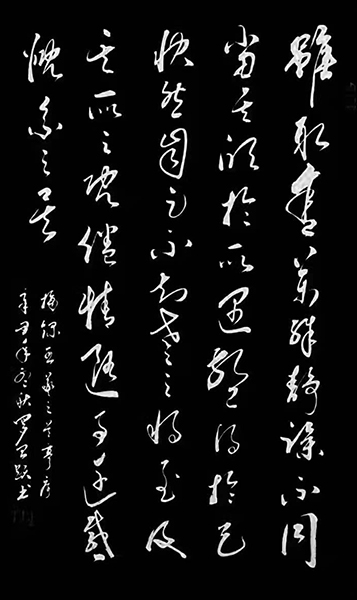 雖取舍萬殊靜躁不同
當其欣於所遇暫得於己
快然自足不知老之將至及
其所之既倦情隨事遷感
慨系之矣
摘錄王羲之蘭亭序
辛丑年秋書